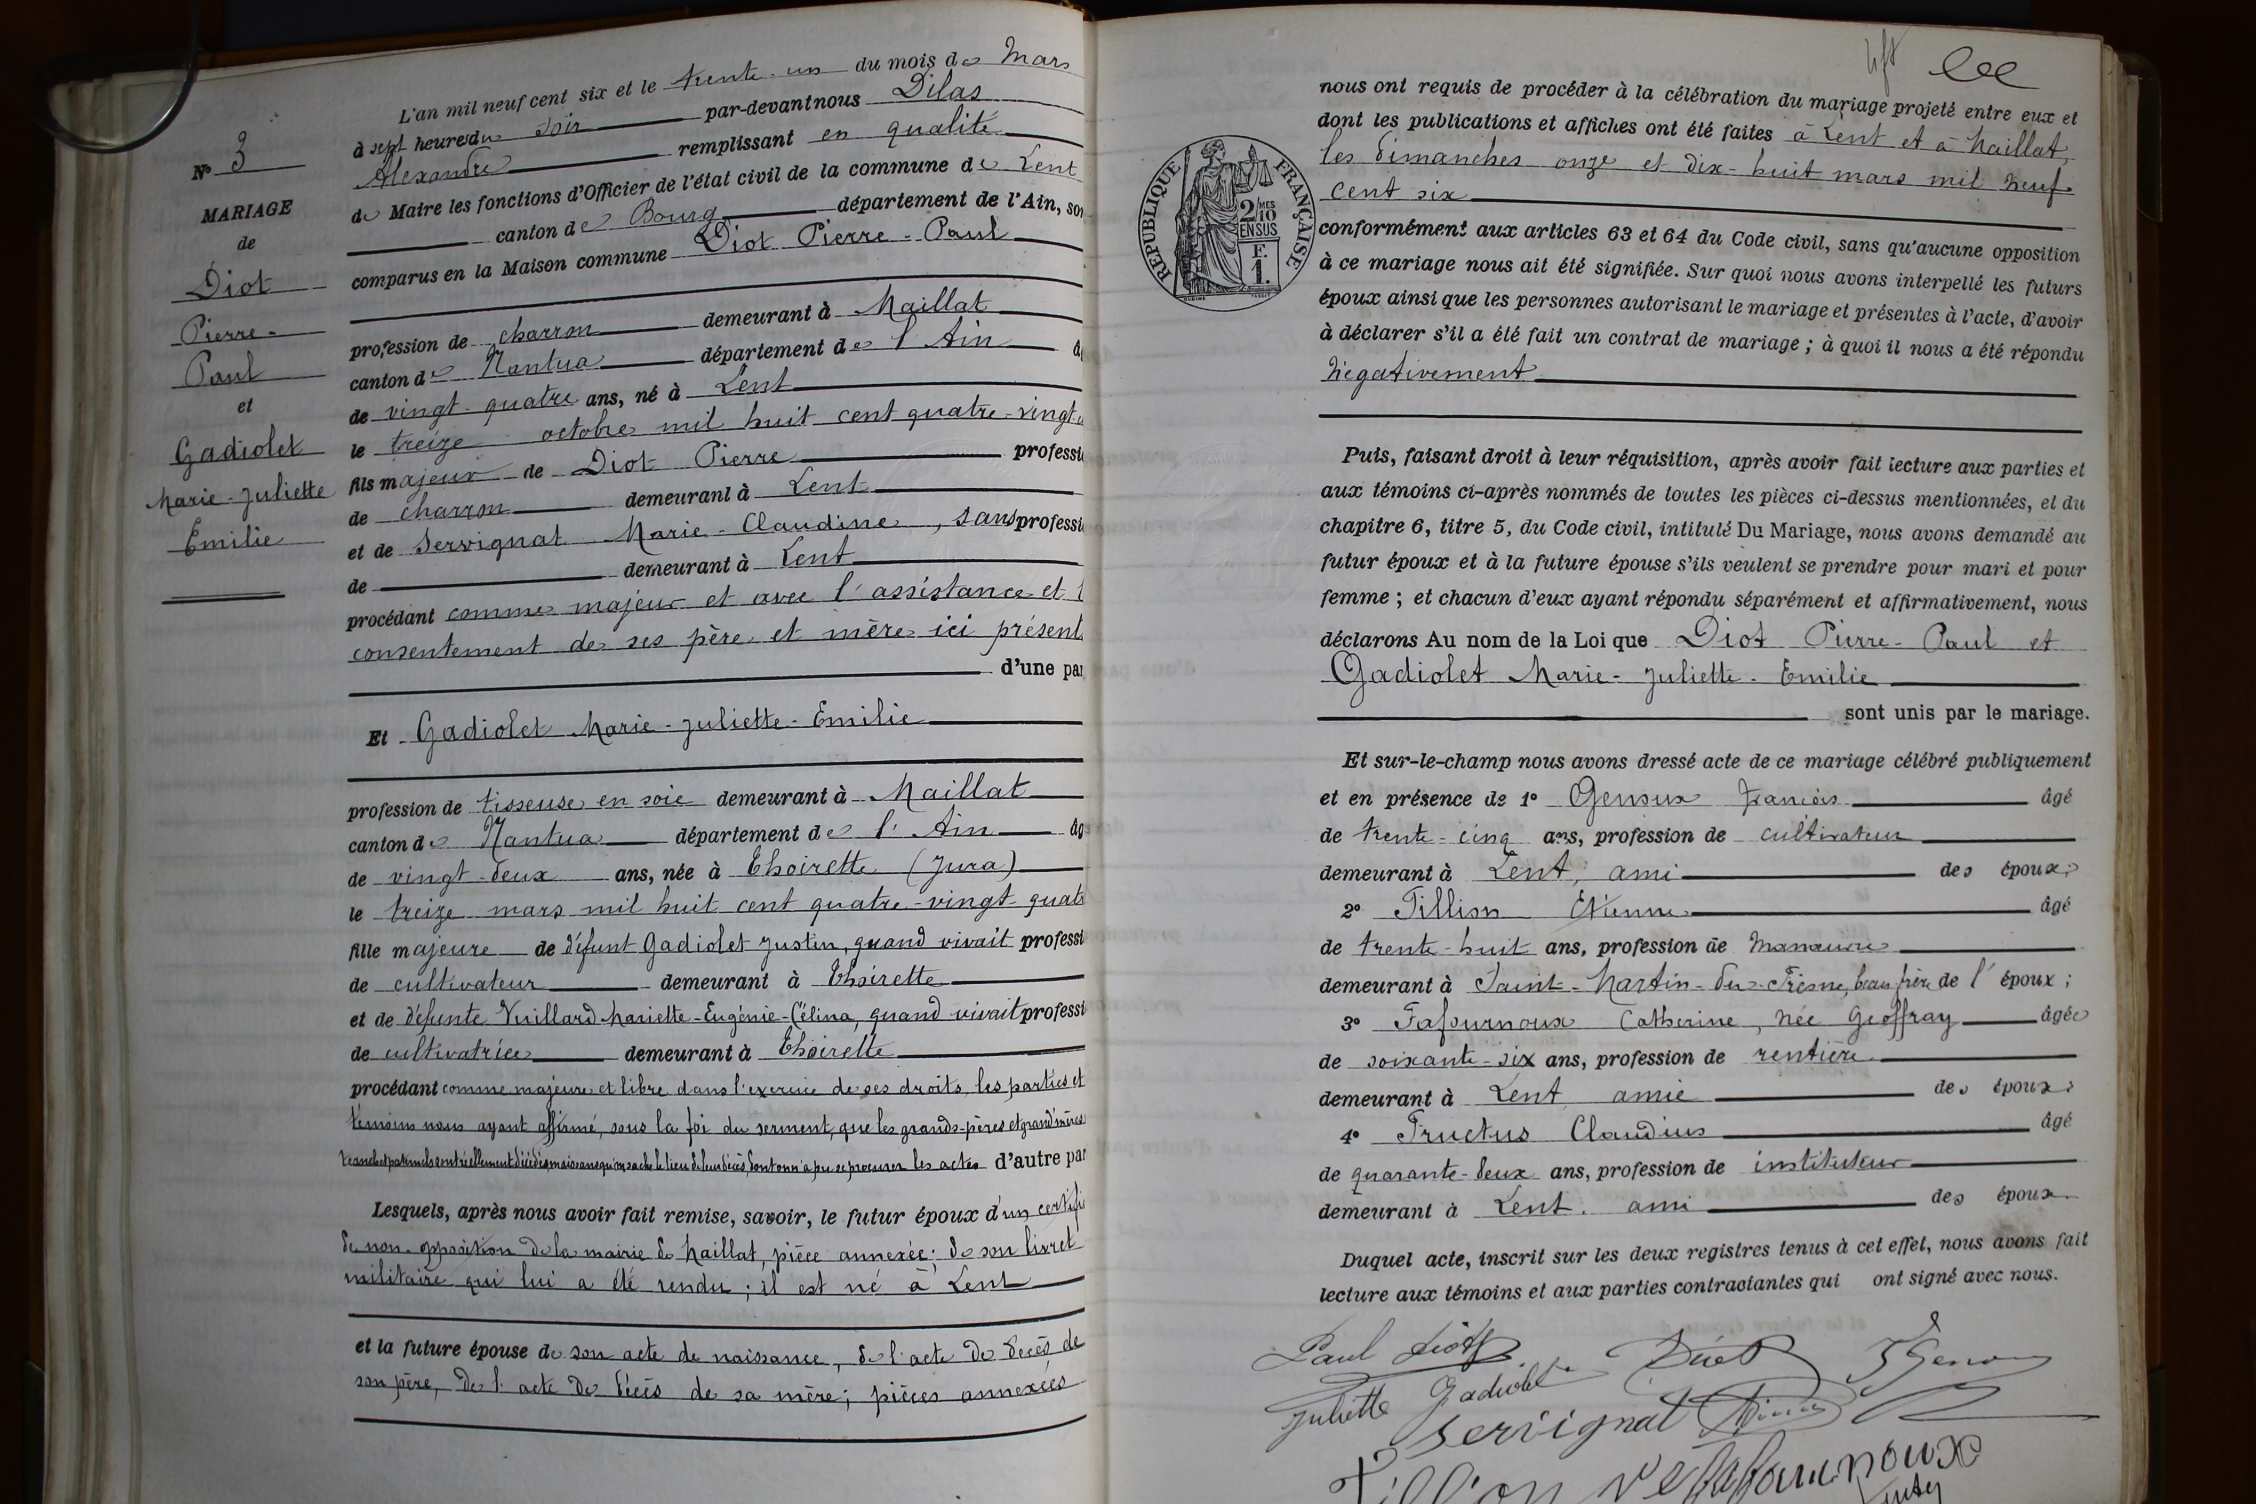 L'an mil neuf cent six et le trente-un du mois de Mars
à sept heures du soir par-devant nous Dilas
Alexandre remplissant en qualité
de Maire les fonctions d'Officier de l'état civil de la commune de Lent
canton de Bourg département de l'Ain, son
comparus en la Maison commune Diot Pierre-Paul
profession de charron demeurant à Maillat
canton de Nantua département de l'Ain
de vingt-quatre ans, né à Lent
le treize octobre mil huit cent quatre-vingt-
fils majeur de Diot Pierre professi
de charron demeurant à Lent
et de Servignat Marie-Claudine, sans professi
de demeurant à Lent
procédant comme majeur et avec l'assistance et l
consentement de ses père et mère ici présent
d'une par
Et Gadiolet Marie-Juliette-Emilie
profession de tisseuse en soie demeurant à Maillat
canton de Nantua département de l'Ain âg
de vingt-deux ans, née à Thoirette (Jura)
le treize mars mil huit cent quatre-vingt-quatr
fille majeure de défunt Gadiolet Justin, quand vivait professi
de cultivateur demeurant à Thoirette
et de défunte Vuillard Mariette-Eugénie-Célina, quand vivait professi
de cultivatrice demeurant à Thoirette
procédant comme majeure et libre dans l'exercice de ses droits, les parties et
témoins nous ayant affirmé, sous la foi du serment, que les grands-pères et grand'mères
sont réellement décédés mais sans qu'on sache le lieu de leur décès, dont on n'a pu se procurer les actes d'autre par
Lesquels, après nous avoir fait remise, savoir, le futur époux d'un certifi
de non-opposition de la mairie de Maillat, pièce annexée; de son livret
militaire qui lui a été rendu; il est né à Lent
et la future épouse de son acte de naissance, de l'acte de décès de
son père, de l'acte de décès de sa mère; pièces annexées
N° 3
MARIAGE
de
Diot
Pierre-
Paul
et
Gadiolet
Marie-Juliette
Emilie
RÉPUBLIQUE FRANÇAISE
2/10
MES
EN SUS
F.
1.
nous ont requis de procéder à la célébration du mariage projeté entre eux et
dont les publications et affiches ont été faites à Lent et à Maillat,
les dimanches onze et dix-huit mars mil neuf-
cent six
conformément aux articles 63 et 64 du Code civil, sans qu'aucune opposition
à ce mariage nous ait été signifiée. Sur quoi nous avons interpellé les futurs
époux ainsi que les personnes autorisant le mariage et présentes à l'acte, d'avoir
à déclarer s'il a été fait un contrat de mariage; à quoi il nous a été répondu
Négativement
Puis, faisant droit à leur réquisition, après avoir fait lecture aux parties et
aux témoins ci-après nommés de toutes les pièces ci-dessus mentionnées, et du
chapitre 6, titre 5, du Code civil, intitulé Du Mariage, nous avons demandé au
futur époux et à la future épouse s'ils veulent se prendre pour mari et pour
femme; et chacun d'eux ayant répondu séparément et affirmativement, nous
déclarons Au nom de la Loi que Diot Pierre-Paul et
Gadiolet Marie-Juliette-Emilie
sont unis par le mariage.
Et sur-le-champ nous avons dressé acte de ce mariage célébré publiquement
et en présence de 1° Genoux François âgé
de trente-cinq ans, profession de cultivateur
demeurant à Lent, ami des époux;
2° Tillion Etienne âgé
de trente-huit ans, profession de manœuvre
demeurant à Saint-Martin-du-Fresne, beau frère de l'époux;
3° Fafournoux Catherine, née Geoffray âgée
de soixante-six ans, profession de rentière
demeurant à Lent amie des époux;
4° Fructus Claudius âgé
de quarante-deux ans, profession de instituteur
demeurant à Lent. ami des époux
Duquel acte, inscrit sur les deux registres tenus à cet effet, nous avons fait
lecture aux témoins et aux parties contractantes qui ont signé avec nous.
Paul Diot Diot F Genoux
Juliette Gadiolet
Servignat
Tillion Ve Fafournoux